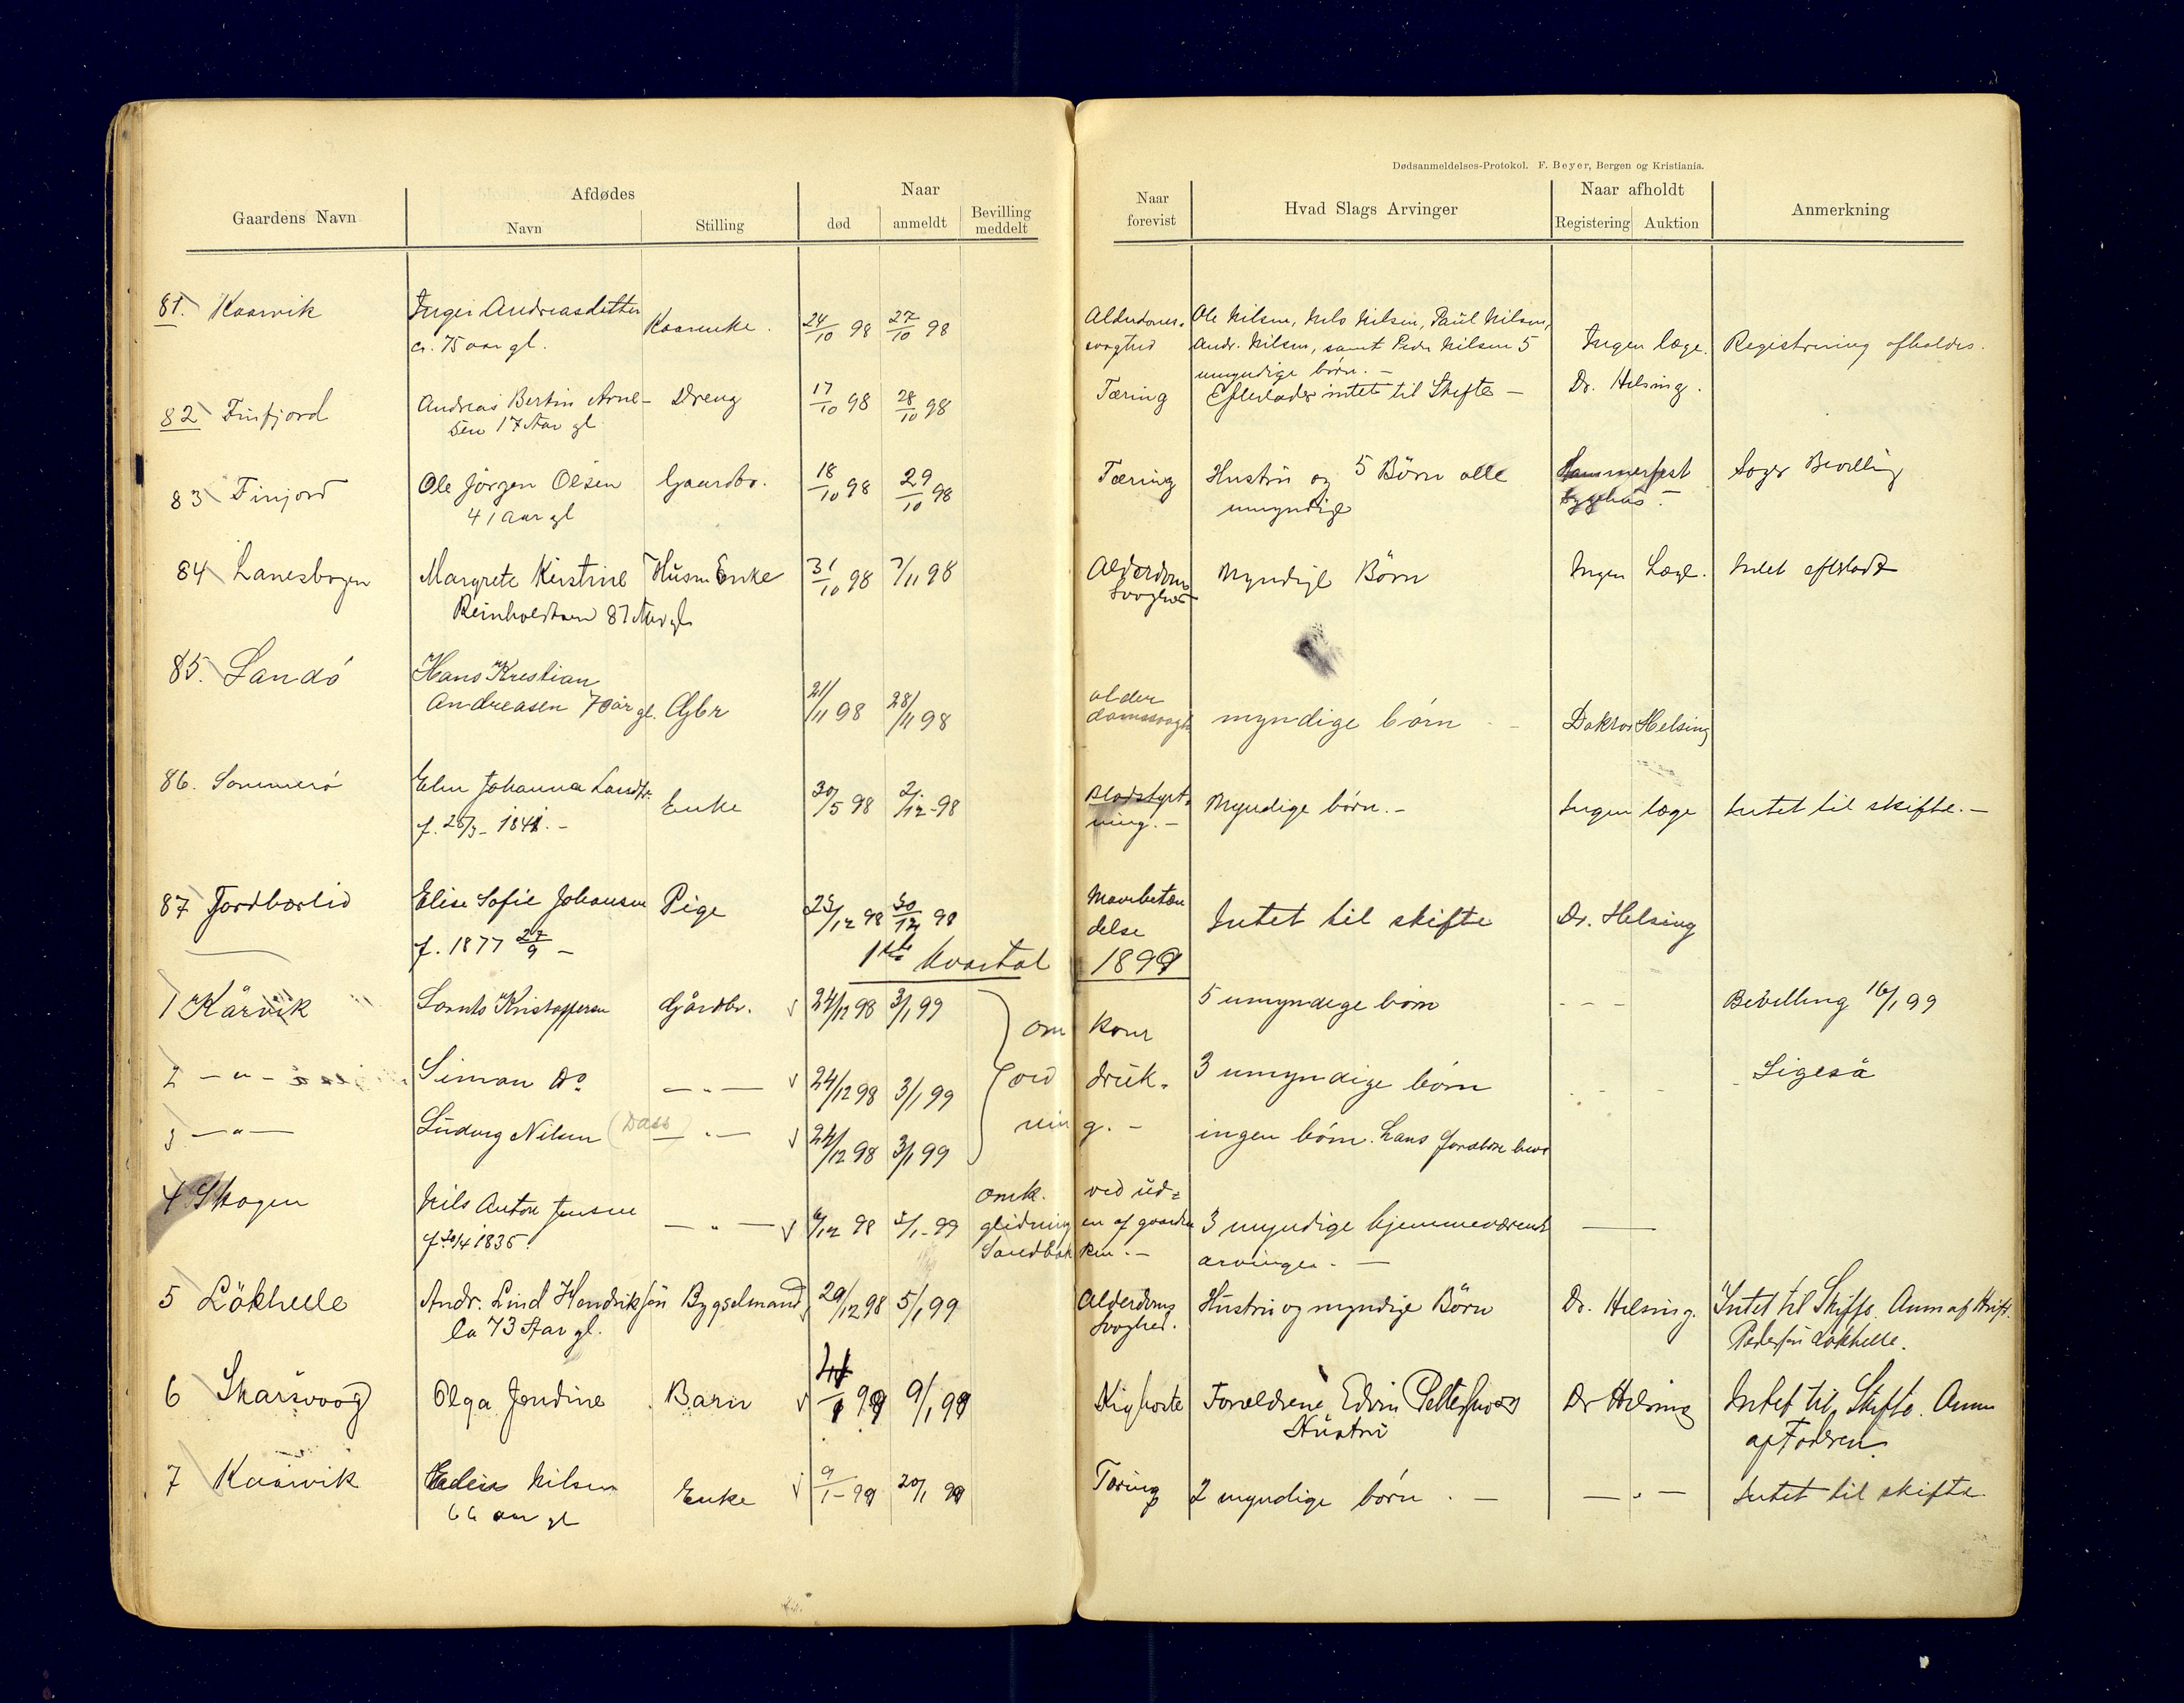 Dødsanmeldelses-Protokol. F. Beyer, Bergen og Kristiania.
Gaardens Navn Afdødes Naar Naar forevist Hvad Slags Arvinger Naar afholdt Anmerkning
Navn Stilling død anmeldt Bevilling meddelt Registering Auktion
81. Kaarvik Inger Andreasdatter Kaarenke. 24/10 98 27/10 98 Alderdoms- Ole Nilsen, Nils Nilsen, Paul Nilsen, Ingen læge. Registrering afholdes.
ca. 75 aar gl. svaghed Andr. Nilsen, samt Peder Nilsen 5
umyndige børn. -
82 Finfjord Andreas Bertin Arne- Dreng 17/10 98 28/10 98 Tæring Efterlader intet til Skifte - Dr. Helsing.
sen 17 Aar gl
83 Finjord Ole Jörgen Olsen Gaardbr. 18/10 98 29/10 98 Tæring Hustru og 5 Börn alle Hammerfest Søger Bevilling
41 Aar gl umyndige sygehus -
84 Lanesbogen Margrete Kirstine Husm Enke 31/10 98 7/11 98 Alderdoms Myndige Börn Ingen Læge. Intet efterladt
Reinholdtsen 87 Aar gl Svaghed
85. Sandö Hans Kristian
Andreasen 70 år gl. Gbr 21/11 98 28/11 98 alder domssvagh myndige børn - Doktor Helsing
86. Sommerö Elen Johanna Enke 30/5 98 2/12 - 98 Blodstyrt- ning. - Myndige børn. - Ingen læge Intet til skifte. -
f. 28/3 - 1841. -
87 Elise Sofie Johansen Pige 23/12 98 30/12 98 Mavebetæn delse Intet til skifte Dr. Helsing
f. 1877 27/9 -
1ste Kvartal 1899
1 Kårvik Kristoffersen Gårdbr. 24/12 98 3/1 99 om kom 5 umyndige børn - - - Bevilling 16/1 99
2 - " - Simon Do - " - 24/12 98 3/1 99 ved druk- 3 umyndige børn - - - Ligeså
3 - " - Ludvig Nilsen (Dass) - " - 24/12 98 3/1 99 nin g. - ingen børn. Hans
4 Skogen Nils Anton Jensen - " - 6/12 98 3/1 - 99 omk. ved ud= glidning en af gaarden Sandbak ken. - 3 myndige hjemmeværende
f. 20/4 1835. arvinger. -
5 Lökhelle Andr. Lind Hendriksen Bygselmand 29/12 98 5/1 99 Alderdoms Svaghed. Hustru og myndige Börn Dr. Helsing. Intet til Skifte. Anm af Krist.
Ca 73 Aar gl. Pedersen Lökhelle.
6 Skarsvaag Olga Jendine Barn 4/1 99 9/1 99 Kighoste Forældrene Edvin Pettersen og Dr Helsing Intet til Skifte. Anm
Hustru af Faderen
7 Kaarvik Nilsen Enke 9/1 - 99 20/1 99 Tæring 2 myndige børn. - - " - Intet til skifte.
66 aar gl